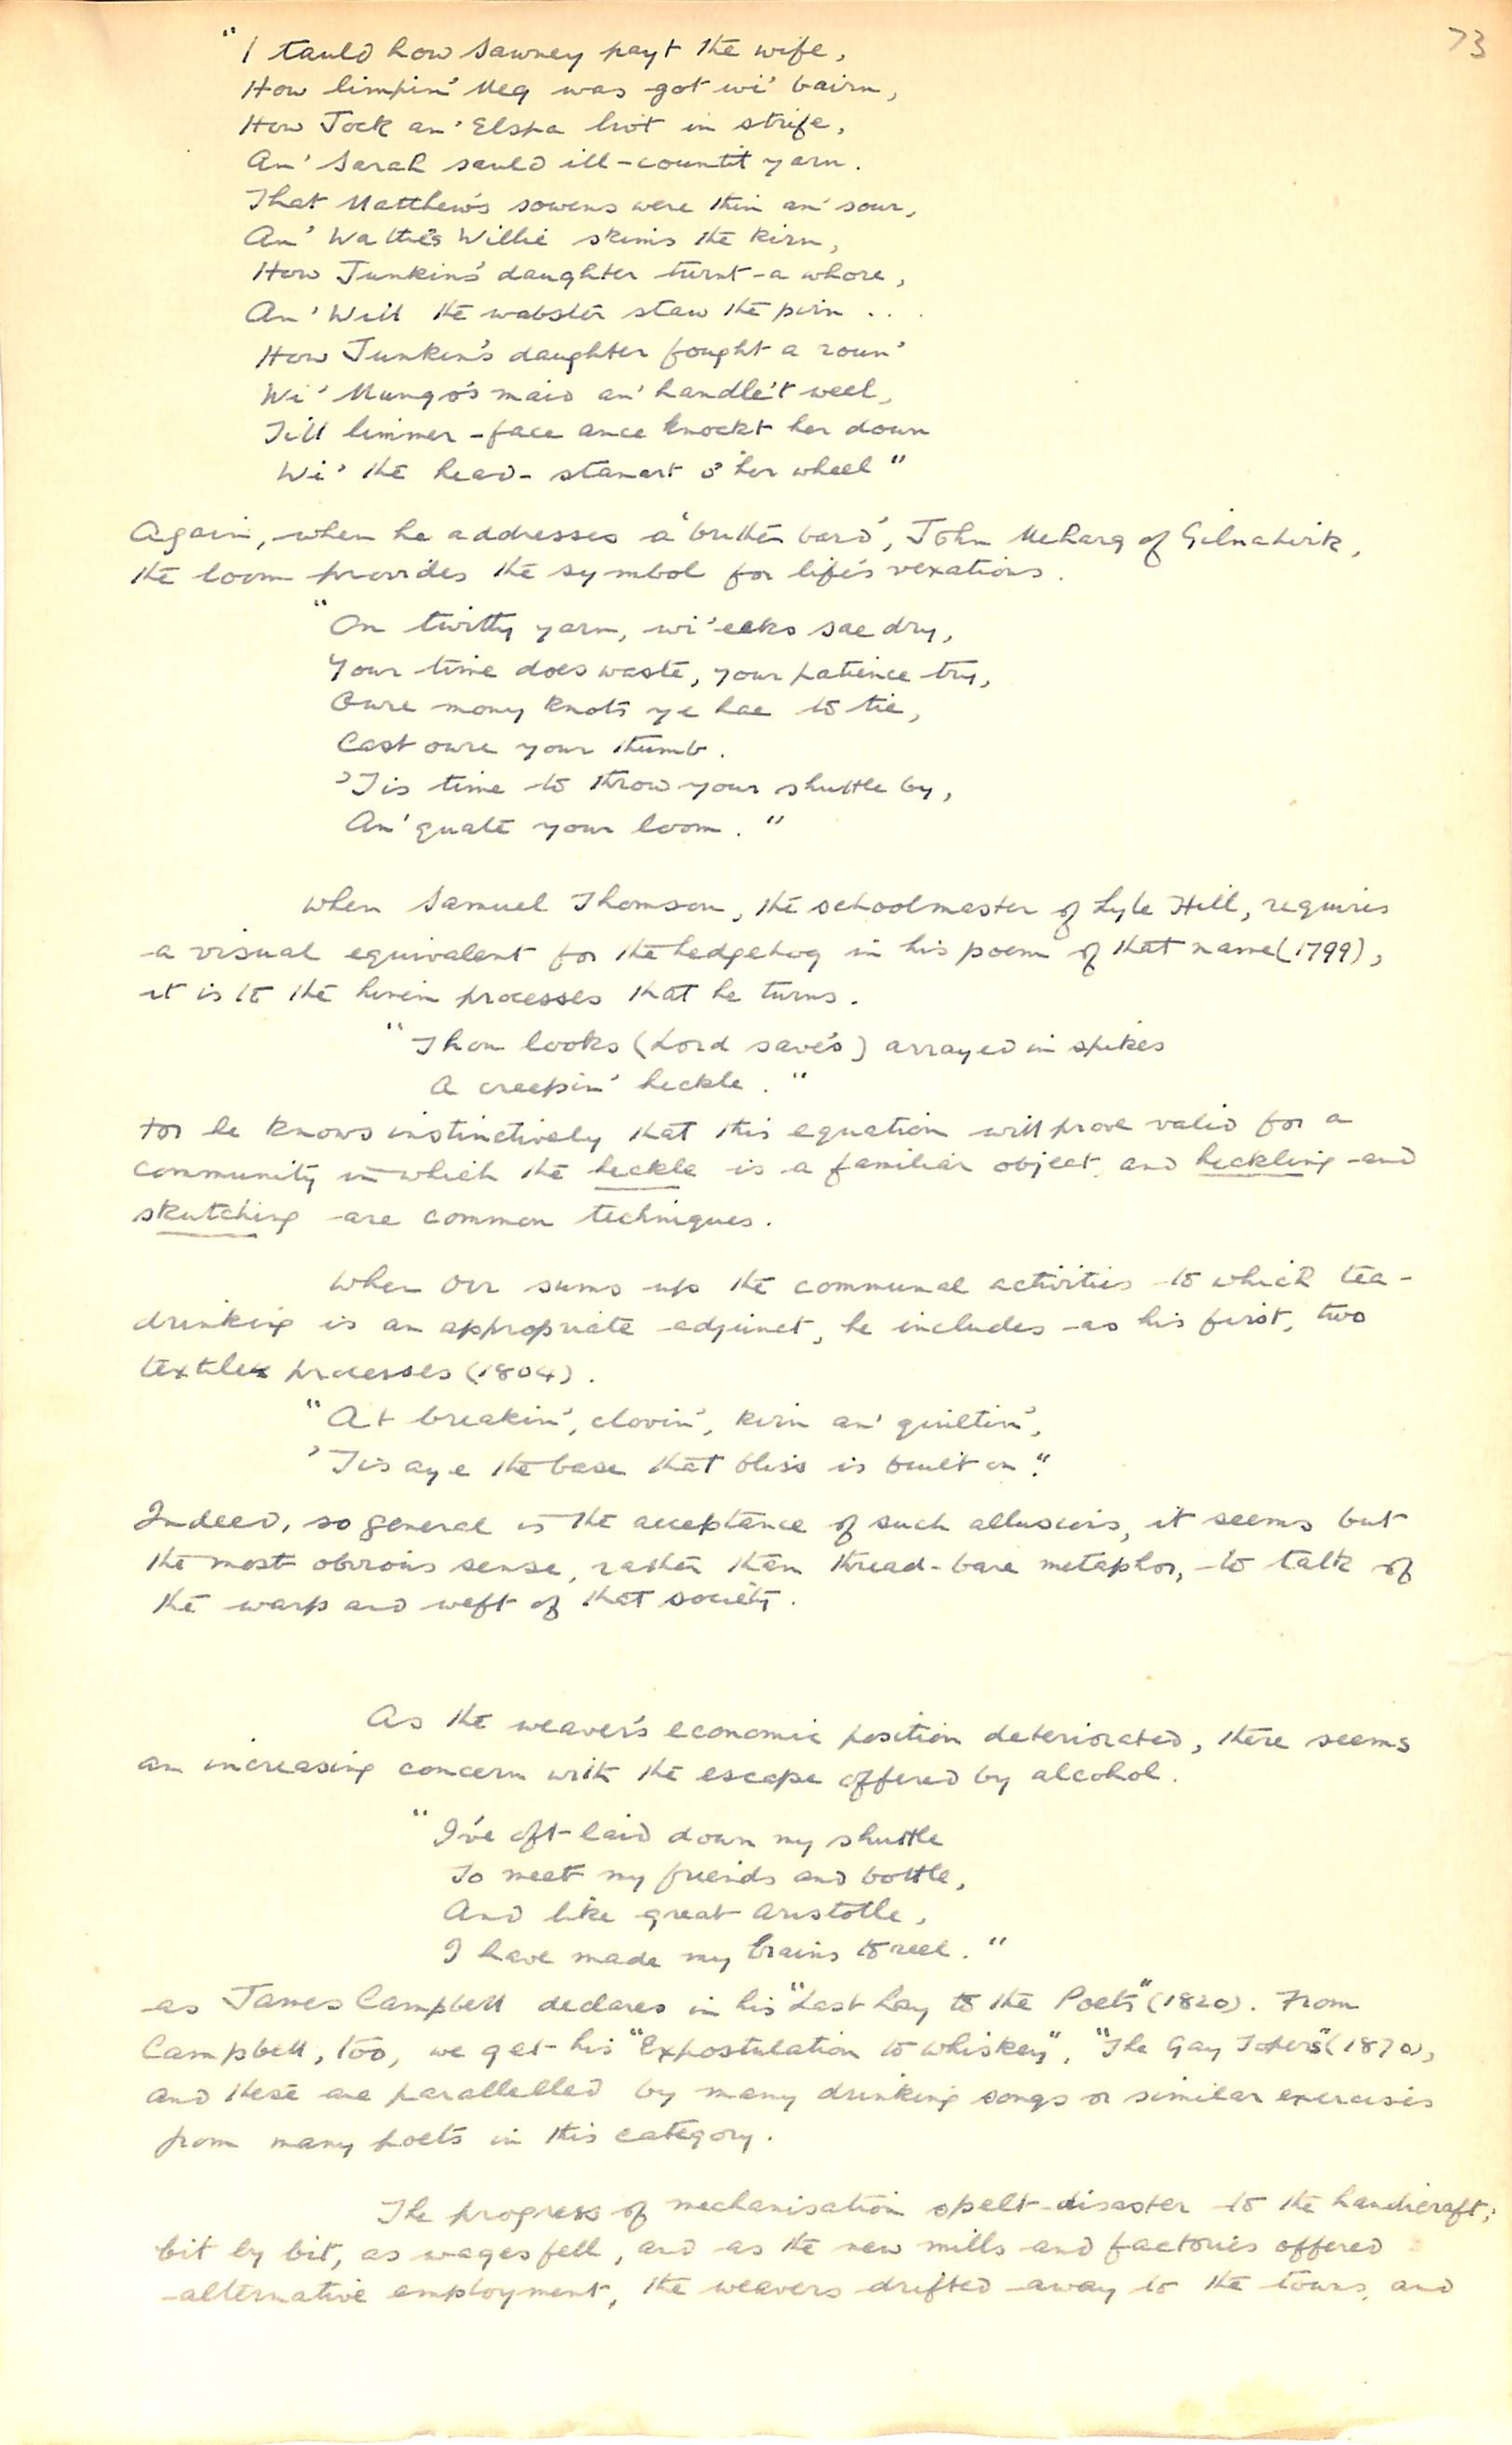 73
"I tauld how Sawney payt the wife,
How limpin' Meg was got wi' bairn,
How Jock an' Elspa hivt in strife,
An' Sarah sauld ill-countit yarn.
That Matthew's sowens were thin an' sour,
An' Wattie's Willie skims the kirn,
How Junkin's daughter turnt a whore,
An' Will the wabster staw the pirn . . .
How Junkin's daughter fought a roun'
Wi' Mungo's maid an' handle't weel,
Till limmer-face ance knockt her down
Wi' the head-stanart o' her wheel"
Again, when he addresses a 'brither bard', John Meharg of Gilnahirk,
the loom provides the symbol for life's vexations.
"On twitty yarn, wi' eeks sae dry,
Your time does waste, your patience try,
Owre mony knots ye hae to tie,
Cast owre your thumb.
'Tis time to throw your shuttle by,
An' quate your loom."
When Samuel Thomson, the schoolmaster of Lyle Hill, requires
a visual equivalent for the hedgehog in his poem of that name (1799),
it is to the linen processes that he turns.
"Thou looks (Lord save's) arrayed in spikes
A creepin' heckle."
for he knows instinctively that this equation will prove valid for a
community in which the heckle is a familiar object and heckling and
skutching are common techniques.
When Orr sums up the communal activities to which tea-
drinking is an appropriate adjunct, he includes as his first, two
textile processes (1804).
"At breakin', clovin', kirn an' quiltin',
'Tis aye the base that bliss is built on."
Indeed, so general is the acceptance of such allusions, it seems but
the most obvious sense, rather than thread-bare metaphor, to talk of
the warp and weft of that society.
As the weaver's economic position deteriorated, there seems
an increasing concern with the escape offered by alcohol.
"I've oft laid down my shuttle
To meet my friends and bottle,
And like great Aristotle,
I have made my brains to reel."
as James Campbell declares in his "Last Lay to the Poets" (1820). From
Campbell, too, we get his "Expostulation to Whiskey", "The Gay Topers" (1870),
and these are parallelled by many drinking songs or similar exercises
from many poets in this category.
The progress of mechanisation spelt disaster to the handicraft;
bit by bit, as wages fell, and as the new mills and factories offered
alternative employment, the weavers drifted away to the towns, and